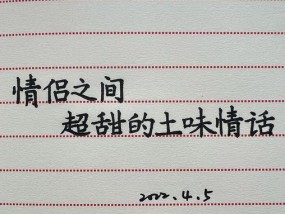 情侣之间
超甜的土味情话
2022.4.5